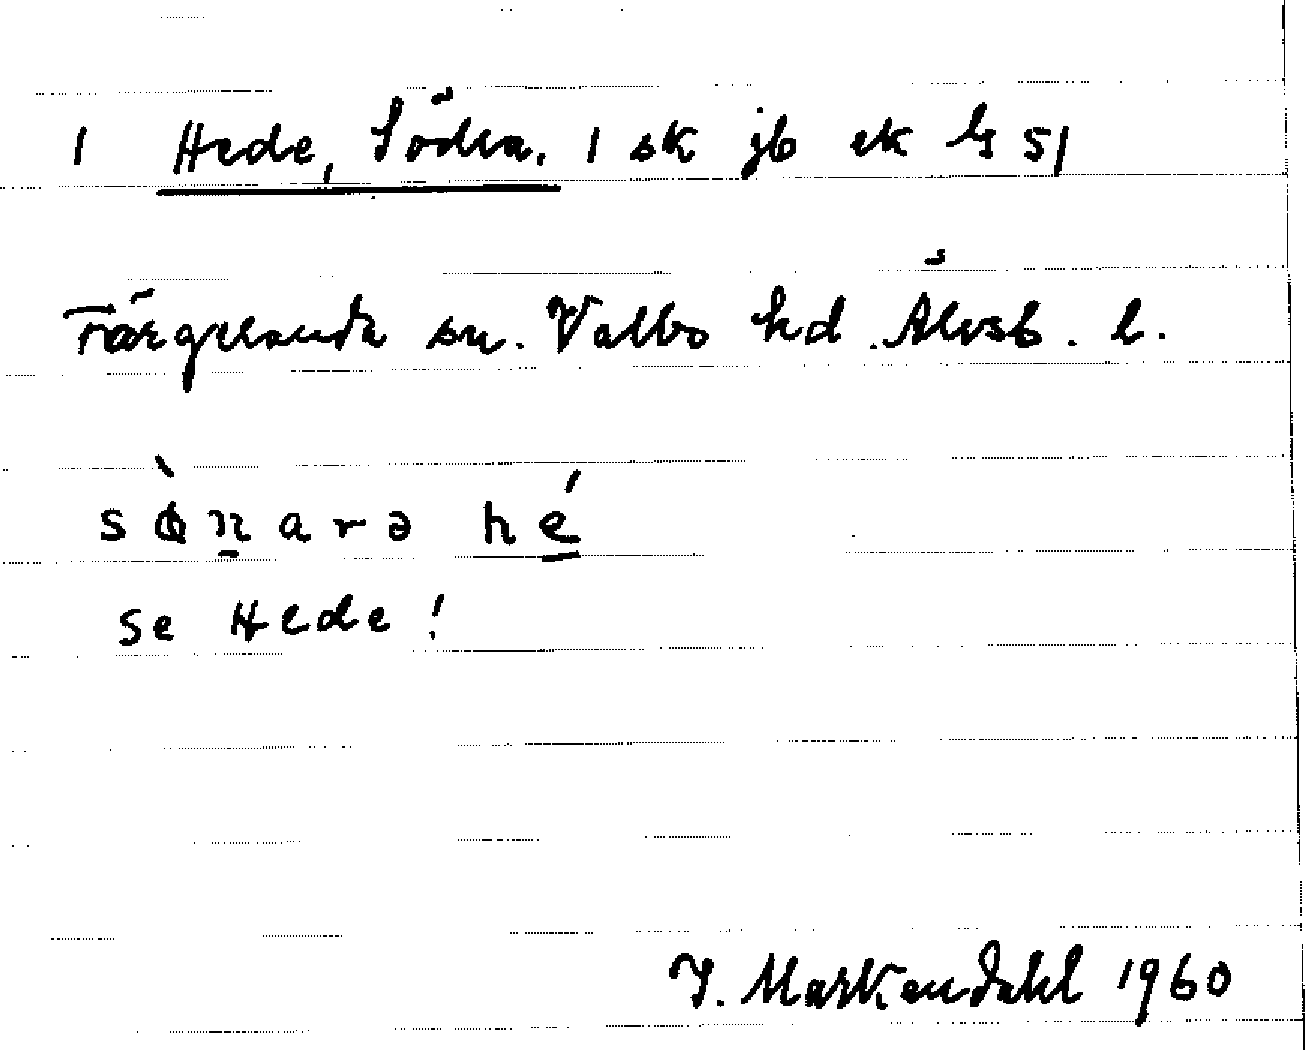 1 Hede, Södra. 1 sk jb ek G 51
Färgelanda sn. Valbo hd. Älvsb. l.
sø̀n̲arə hé̲
se Hede!
J. Markendahl 1960